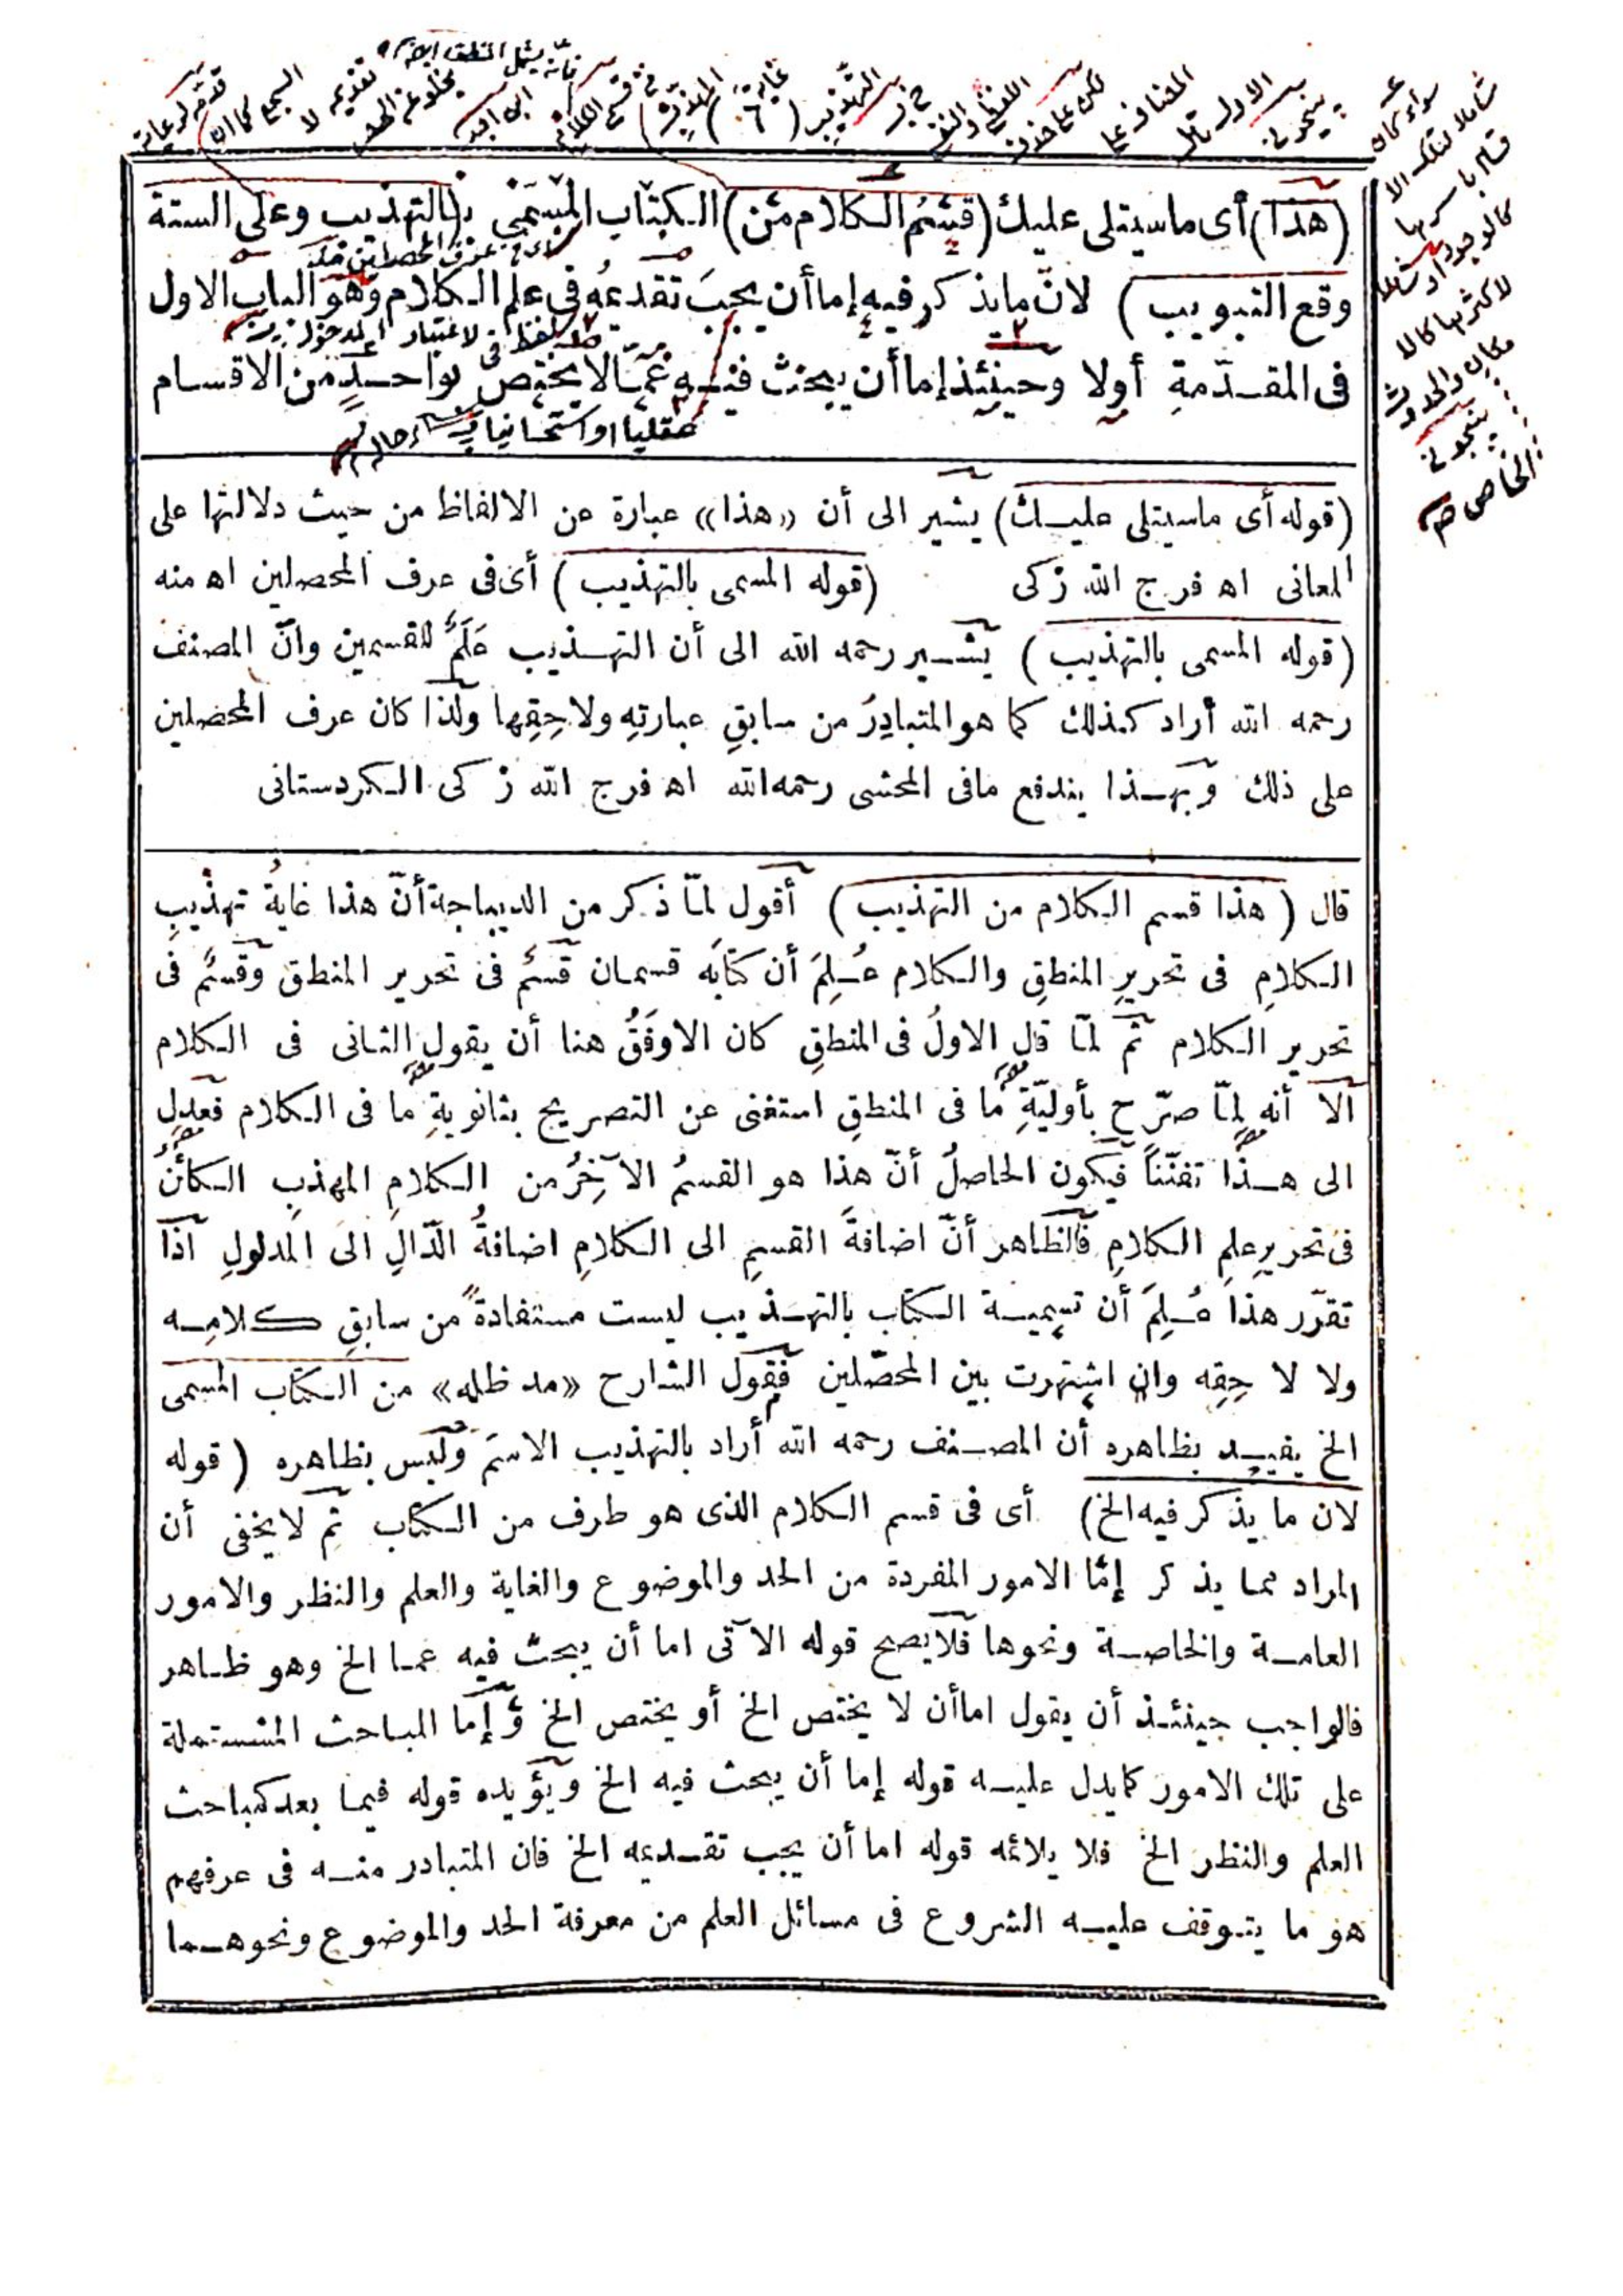 (٦)
(هذا) أى ماسيتلى عليك (قِسْمُ الكلام مِن) الكتاب المسَمَّى بـ(التهذيب وعلى الستة
وقع التبويب) لانّ مايذكر فيه إما أن يجبَ تقديمُه فى علم الكلام وهو الباب الاول
فى المقدّمةِ أولا وحينئذ إما أن يبحث فيه عمّا لا يختص بواحدٍ من الاقسام
(قوله أى ماسيتلى عليك) يشير الى أن «هذا» عبارة عن الالفاظ من حيث دلالتها على
المعانى اه فرج الله زكى (قوله المسمى بالتهذيب) أى فى عرف المحصلين اه منه
(قوله المسمى بالتهذيب) يشير رحمه الله الى أن التهذيب عَلَمٌ للقسمين وانّ المصنف
رحمه الله أراد كذلك كما هو المتبادِرُ من سابقِ عبارتِهِ ولاحِقِها ولذا كان عرف المحصلين
على ذلك وبهذا يندفع مافى المحشى رحمه الله اه فرج الله زكى الكردستانى
قال (هذا قسم الكلام من التهذيب) أقول لمّا ذكر من الديباجة أنّ هذا غايةُ تهذيبِ
الكلامِ فى تحريرِ المنطقِ والكلام عُلِمَ أن كتابَه قسمان قسمٌ فى تحرير المنطق وقسمٌ فى
تحرير الكلام ثم لمّا قال الاولُ فى المنطقِ كان الاوفَقُ هنا أن يقول الثانى فى الكلام
الا أنه لمّا صرّح بأوليّةِ ما فى المنطقِ استغنى عن التصريح بثانويةِ ما فى الكلام فعدل
الى هذا تفنّناً فيكون الحاصلُ أنّ هذا هو القسمُ الآخِرُ من الكلامِ المهذبِ الكائنُ
فى تحريرِ علمِ الكلامِ فالظاهر أنّ اضافةَ القسمِ الى الكلامِ اضافةُ الدّالِ الى المدلولِ اذا
تقرّر هذا عُلِمَ أن تسمية الكتاب بالتهذيب ليست مستفادةً من سابقِ كلامِه
ولا لا حِقِه وان اشتهرت بين المحصّلين فقول الشارح «مد ظله» من الكتاب المسمى
الخ يفيد بظاهره أن المصنف رحمه الله أراد بالتهذيب الاسمَ وليس بظاهره (قوله
لان ما يذكر فيه الخ) أى فى قسم الكلام الذى هو طرف من الكتاب ثم لايخفى أن
المراد مما يذكر إمّا الامور المفردة من الحد والموضوع والغاية والعلم والنظر والامور
العامة والخاصة ونحوها فلا يصح قوله الآتى اما أن يبحث فيه عما الخ وهو ظاهر
فالواجب حينئذ أن يقول اما أن لا يختص الخ أو يختص الخ وإما المباحث المشتملة
على تلك الامور كما يدل عليه قوله إما أن يبحث فيه الخ ويؤيده قوله فيما بعد كمباحث
العلم والنظر الخ فلا يلائمه قوله اما أن يجب تقديمه الخ فان المتبادر منه فى عرفهم
هو ما يتوقف عليه الشروع فى مسائل العلم من معرفة الحد والموضوع ونحوهما